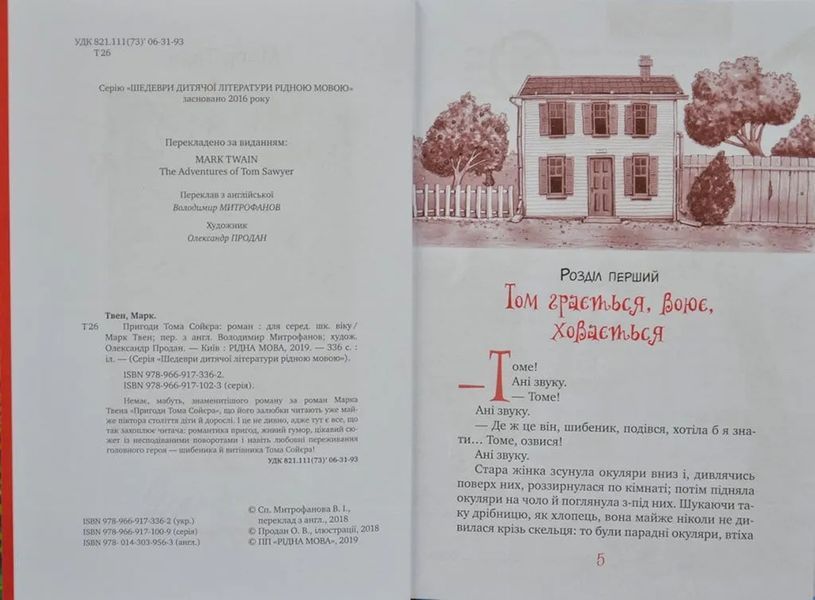 УДК 821.111(73)' 06-31-93
Т 26
Серію «ШЕДЕВРИ ДИТЯЧОЇ ЛІТЕРАТУРИ РІДНОЮ МОВОЮ»
засновано 2016 року
Перекладено за виданням:
MARK TWAIN
The Adventures of Tom Sawyer
Переклав з англійської
Володимир МИТРОФАНОВ
Художник
Олександр ПРОДАН
Твен, Марк.
Т26 Пригоди Тома Сойєра: роман : для серед. шк. віку /
Марк Твен; пер. з англ. Володимир Митрофанов; худож.
Олександр Продан. — Київ : РІДНА МОВА, 2019. — 336 с. :
іл. — (Серія «Шедеври дитячої літератури рідною мовою»).
ISBN 978-966-917-336-2.
ISBN 978-966-917-102-3 (серія).
Немає, мабуть, знаменитішого роману за роман Марка
Твена «Пригоди Тома Сойєра», що його залюбки читають уже май-
же півтора століття діти й дорослі. І це не дивно, адже тут є все, що
так захоплює читача: романтика пригод, живий гумор, цікавий сю-
жет із несподіваними поворотами і навіть любовні переживання
головного героя — шибеника й витівника Тома Сойєра!
УДК 821.111(73)' 06-31-93
ISBN 978-966-917-336-2 (укр.)
ISBN 978-966-917-100-9 (серія)
ISBN 978- 014-303-956-3 (англ.)
© Сп. Митрофанова В. І.,
переклад з англ., 2018
© Продан О. В., ілюстрації, 2018
© ПП «РІДНА МОВА», 2019
Розділ перший
Том грається, воює,
ховається
— Томе!
Ані звуку.
— Томе!
Ані звуку.
— Де ж це він, шибеник, подівся, хотіла б я зна-
ти... Томе, озвися!
Ані звуку.
Стара жінка зсунула окуляри вниз і, дивлячись
поверх них, роззирнулася по кімнаті; потім підняла
окуляри на чоло й поглянула з-під них. Шукаючи та-
ку дрібницю, як хлопець, вона майже ніколи не ди-
вилася крізь скельця: то були парадні окуляри, втіха
5